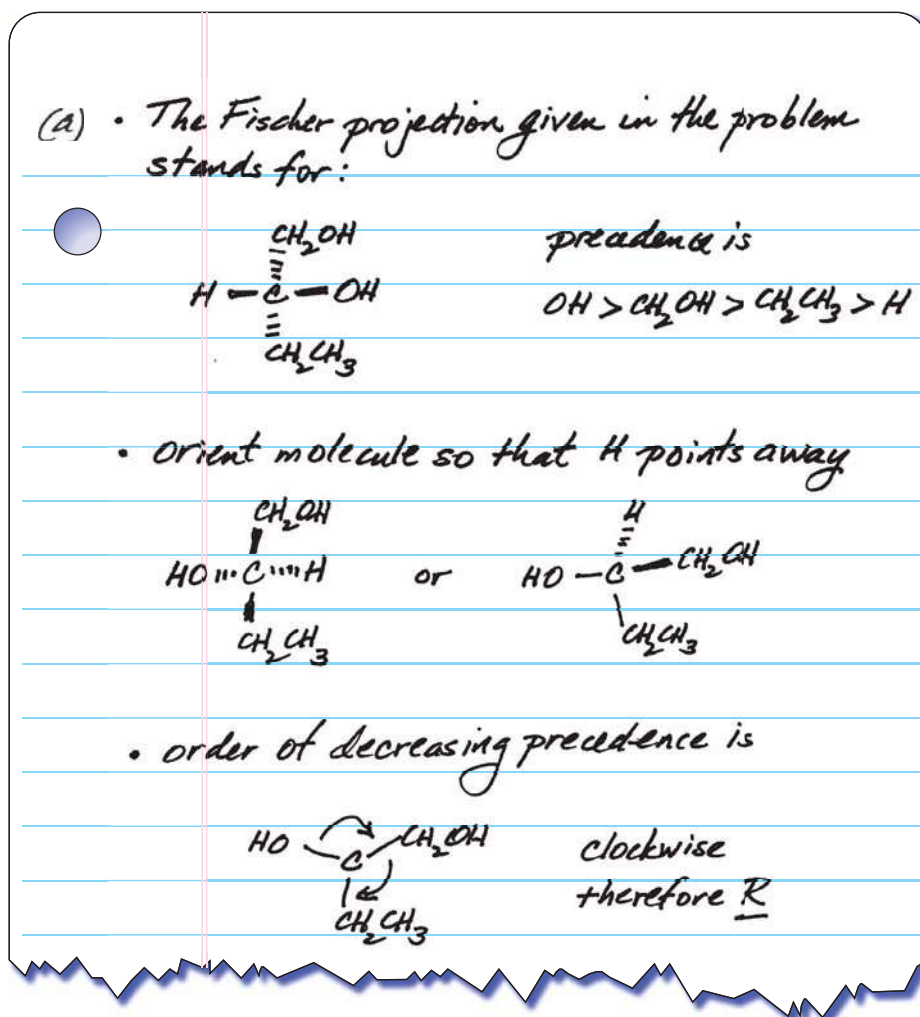 (a) • The Fischer projection given in the problem
stands for:
CH₂OH
H C OH
CH₂CH₃
precedence is
OH > CH₂OH > CH₂CH₃ > H
• orient molecule so that H points away
CH₂OH
HO C H
CH₂CH₃
or
H
HO C CH₂OH
CH₂CH₃
• order of decreasing precedence is
HO C CH₂OH
CH₂CH₃
clockwise
therefore R